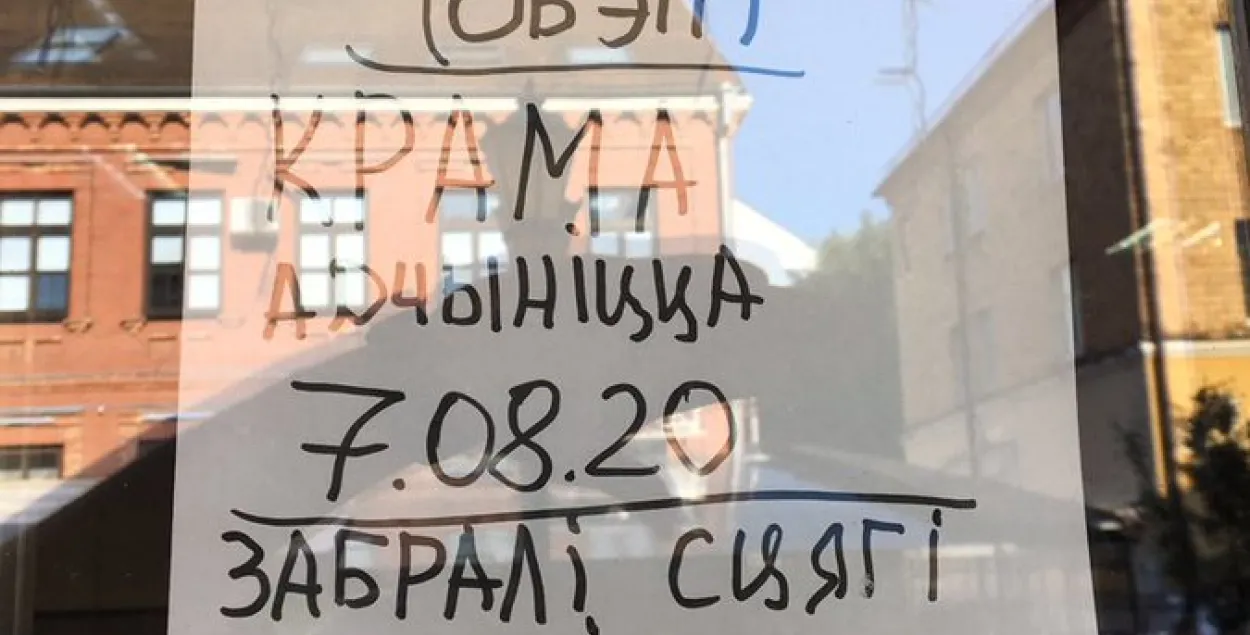 (ОБЭП)
КРАМА
АДЧЫНІЦЦА
7.08.20
ЗАБРАЛІ СЦЯГІ